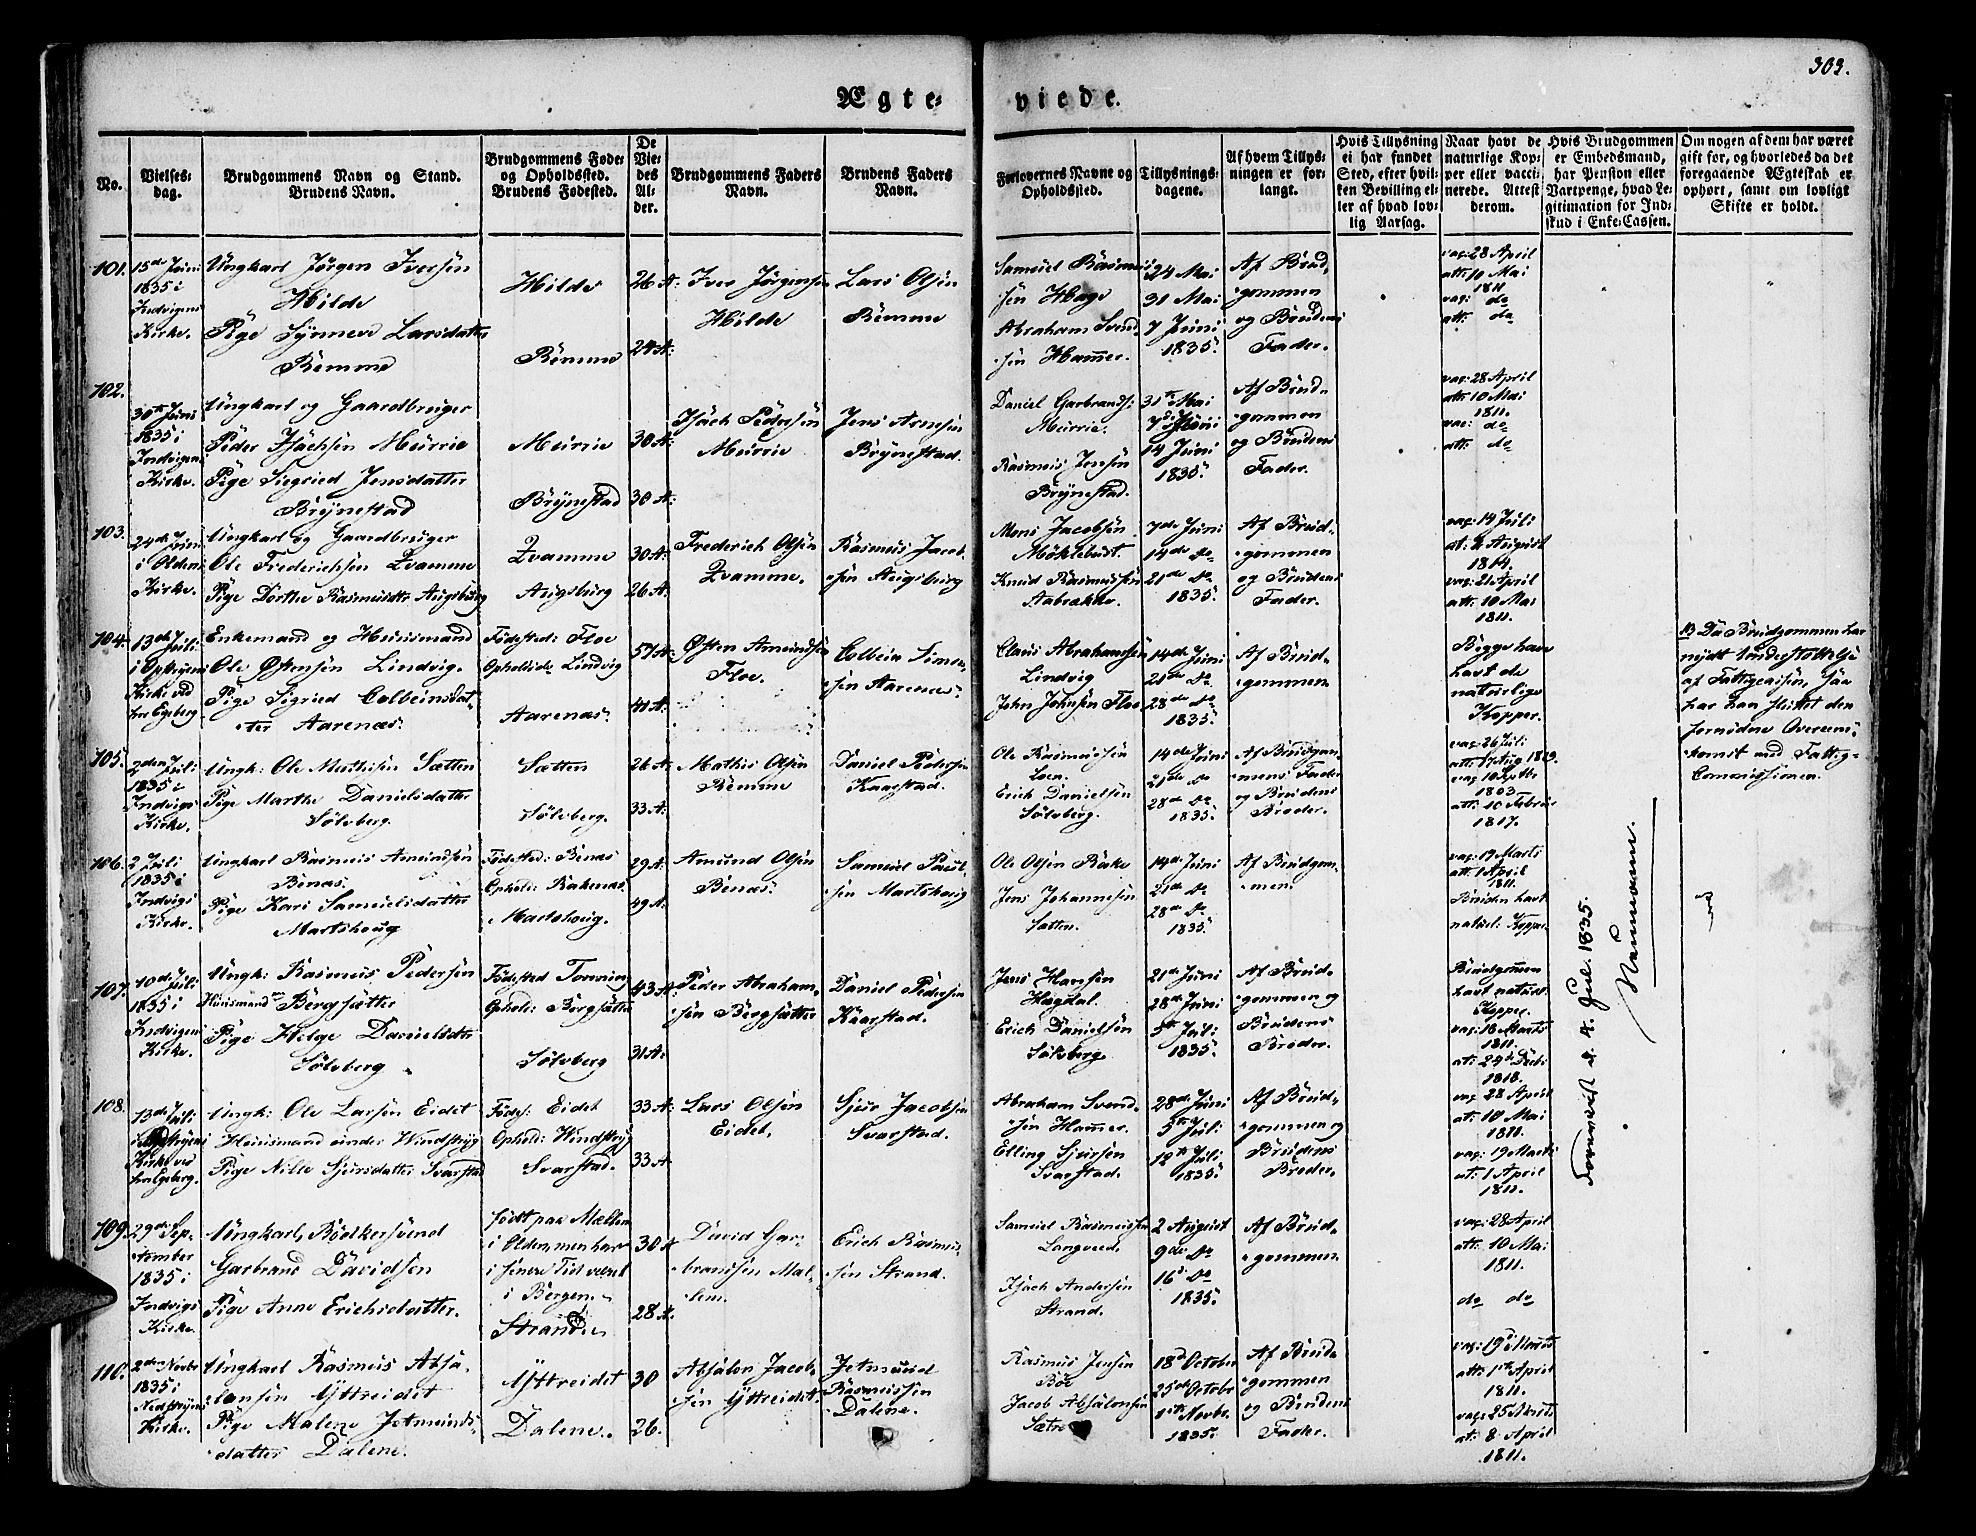 303.
Ægte-
viede.
No.
Vielses-
dag.
Brudgommens Navn og Stand.
Brudens Navn.
Brudgommens Føde-
og Opholdssted.
Brudens Fødested.
De
Vie-
des
Al-
der.
Brudgommens Faders
Navn.
Brudens Faders
Navn.
Forlovernes Navne og
Opholdssted.
Tillysnings-
dagene.
Af hvem Tillys-
ningen er for-
langt.
Hvis Tillysning
ei har fundet
Sted, efter hvil-
ken Bevilling el-
ler af hvad lov-
lig Aarsag.
Naar havt de
naturlige Kop-
per eller vacci-
nerede. Attest
derom.
Hvis Brudgommen
er Embedsmand,
har Pension eller
Vartpenge, hvad Le-
gitimation for Ind-
skud i Enke-Cassen.
Om nogen af dem har været
gift for, og hvorledes da det
foregaaende Ægteskab er
ophørt, samt om lovligt
Skifte er holdt.
101.
15de Juni
1835 i
Indvigens
Kirke.
Ungkarl Jørgen Iversen
Hilde
Pige Synneve Larsdatter
Rømme
Hilde
Rømme
26 A:
24 A:
Iver Jørgensen
Hilde
Lars Olsen
Rømme
Samuel Rasmus-
sen Hage
Abraham Svend-
sen Hammer.
24 Mai
31 Mai
7 Juni
1835.
Af Brud-
gommen
og Brudens
Fader.
vac: 28 April
att: 10 Mai
1811
vac: do
att: do
102.
30te Juni
1835 i
Indvigens
Kirke.
Ungkarl og Gaardbruger
Peder Isachsen Murrie
Pige Siegried Jensdatter
Brynestad
Murrie
Brynestad
30 A:
30 A:
Isach Pedersen
Murrie
Jens Arnesen
Brynestad.
Daniel Garbrands:
Murrie.
Rasmus Jensen
Brynestad.
31te Mai
7de Juni
14 Juni
1835.
Af Brud-
gommen
og Brudens
Fader.
vac: 28 April
att: 10 Mai
1811.
vac: do
att: do
103.
24de Juni
i Olden
Kirke.
Ungkarl og Gaardbruger
Ole Frederichsen Qvamme
Pige Dorthe Rasmusdtr Augsburg
Qvamme
Augsburg
30 A:
26 A:
Frederich Olsen
Qvamme.
Rasmus Jacob-
sen Augsburg
Mons Jacobsen
Møklebust.
Knud Rasmussen
Aabrekke.
7de Juni
14de Do
21de Do
1835.
Af Brud-
gommen
og Brudens
Fader.
vac: 14 Juli
at: 2 August
1814.
vac: 21 April
att: 10 Mai
1811.
104.
13de Juli
i Opstryens
Kirke ved
hr Egeberg
Enkemand og Huusmand
Ole Østensen Lindvig.
Pige Sigried Colbeinsdat-
ter Aarenæs.
Fødested: Floe
Opholdsde Lindvig
Aarenæs.
57 A:
41 A.
Østen Amundsen
Floe.
Colbein Simon-
sen Aarenæs.
Claus Abrahamsen
Lindvig
John Johnsen Floe
14de Juni
21de Do
28de Do
1835.
Af Brud-
gommen
Begge have
havt de
naturlige
Kopper.
Da Brudgommen har
nydt Understøttelse
af Fattigcassen, saa
har han sluttet den
fornødne Overeens-
komst med Fattig-
Commissionen.
105.
2den Juli
1835 i
Indvigs
Kirke.
Ungk: Ole Mathisen Sætten
Pige Marthe Danielsdatter
Sølvberg.
Sætten
Sølvberg.
26 A:
33 A:
Mathis Olsen
Rømme
Daniel Pedersen
Kaarstad.
Ole Rasmussen
Loen.
Erich Danielsen
Sølvberg.
14de Juni
21de Do
28de Do
1835.
Af Brudgom-
mens Fader
og Brudens
Broder.
vac: 26 Juli
att: 1 Aug 1819.
vac 10 Sptbr
1803
att: 10 Febru
1817.
106.
2 Juli
1835 i
Indvigs
Kirke.
Ungkarl Rasmus Amundsen
Benæs.
Pige Kari Samuelsdatter
Martshoug
Fødested: Benæs
Ophold: Rakenæs
Martshoug.
29 A:
49 A.
Amund Olsen
Benæs.
Samuel Paul-
sen Martshoug
Ole Olsen Rake
Jens Johannesen
Sætten.
14de Juni
21de Do
28de Do
1835.
Af Brudgom-
men.
vac: 19 Marts
att: 1 April
1811.
Bruden havt
naturl: Kopper
107.
10de Juli
1835 i
Indvigens
Kirke.
Ungk: Rasmus Pedersen
Huusmand Bergsætter
Pige Helge Danielsdtr
Sølvberg
Fødested Torvning
Ophold: Bergsætter
Sølvberg
43 A:
31 A:
Peder Abraham-
sen Bergsætter
Daniel Pedersen
Kaarstad.
Jens Hansen
Hagdal.
Erich Danielsen
Sølvberg
21de Juni
28de Juni
5te Juli
1835.
Af Brud-
gommen og
Brudens
Broder.
Brudgommen
havt naturl:
Kopper.
vac: 18 Marts
1811.
at: 29de Decbr
1818.
108.
13de Juli
i Opstryens
Kirke ved
hr Egeberg.
Ungk: Ole Larsen Eidet
Huusmand under Windstryg
Pige Nille Sjursdatter Svarstad
Fødes: Eidet
Ophold: Windstryg
Svarstad.
33 A:
33 A.
Lars Olsen
Eidet.
Sjur Jacobsen
Svarstad.
Abraham Svend-
sen Hammer.
Elling Sjursen
Svarstad.
28de Juni
5te Juli
12te Juli
1835.
Af Brud-
gommen og
Brudens
Broder.
vac: 28 April
at: 10 Mai
1811.
vac: 19 Marts
at: 1 April
1811.
109.
29de Sep-
tember
1835 i
Indvigs
Kirke.
Ungkarl, Bødkersvend
Garbrand Davidsen
Pige Anne Erichsdatter.
født paa Mællem
i Olden, men har
i senere Tid været
i Bergen.
Strande
30 A
28 A.
David Gar-
brandsen Mæl-
lem.
Erich Rasmus-
sen Strand.
Samuel Rasmussen
Langved.
Isach Andersen
Strand.
2 August
9de Do
16d Do
1835.
Af Brud-
gommen.
vac: 28 April
att: 10 Mai
1811.
do do
110.
2den Novbr
1835 i
Nedstryens
Kirke.
Ungkarl Rasmus Absa-
lonsen Yttreidet
Pige Malene Jetmunds-
datter Dalene.
Yttreidet
Dalene.
30
26.
Absalon Jacob-
sen Yttreidet
Jetmund
Rasmussen
Dalene.
Rasmus Jensen
Bøe
Jacob Absalonsen
Sætre
18d October
25de Octobr
1ste Novbr.
1835.
Af Brud-
gommen
og Brudens
Fader.
vac: 19d Marts
att: 1te April
1811.
vac: 25 Marts
at: 8 April
1811.
d. 4. Jul. 1835.
Neumann.